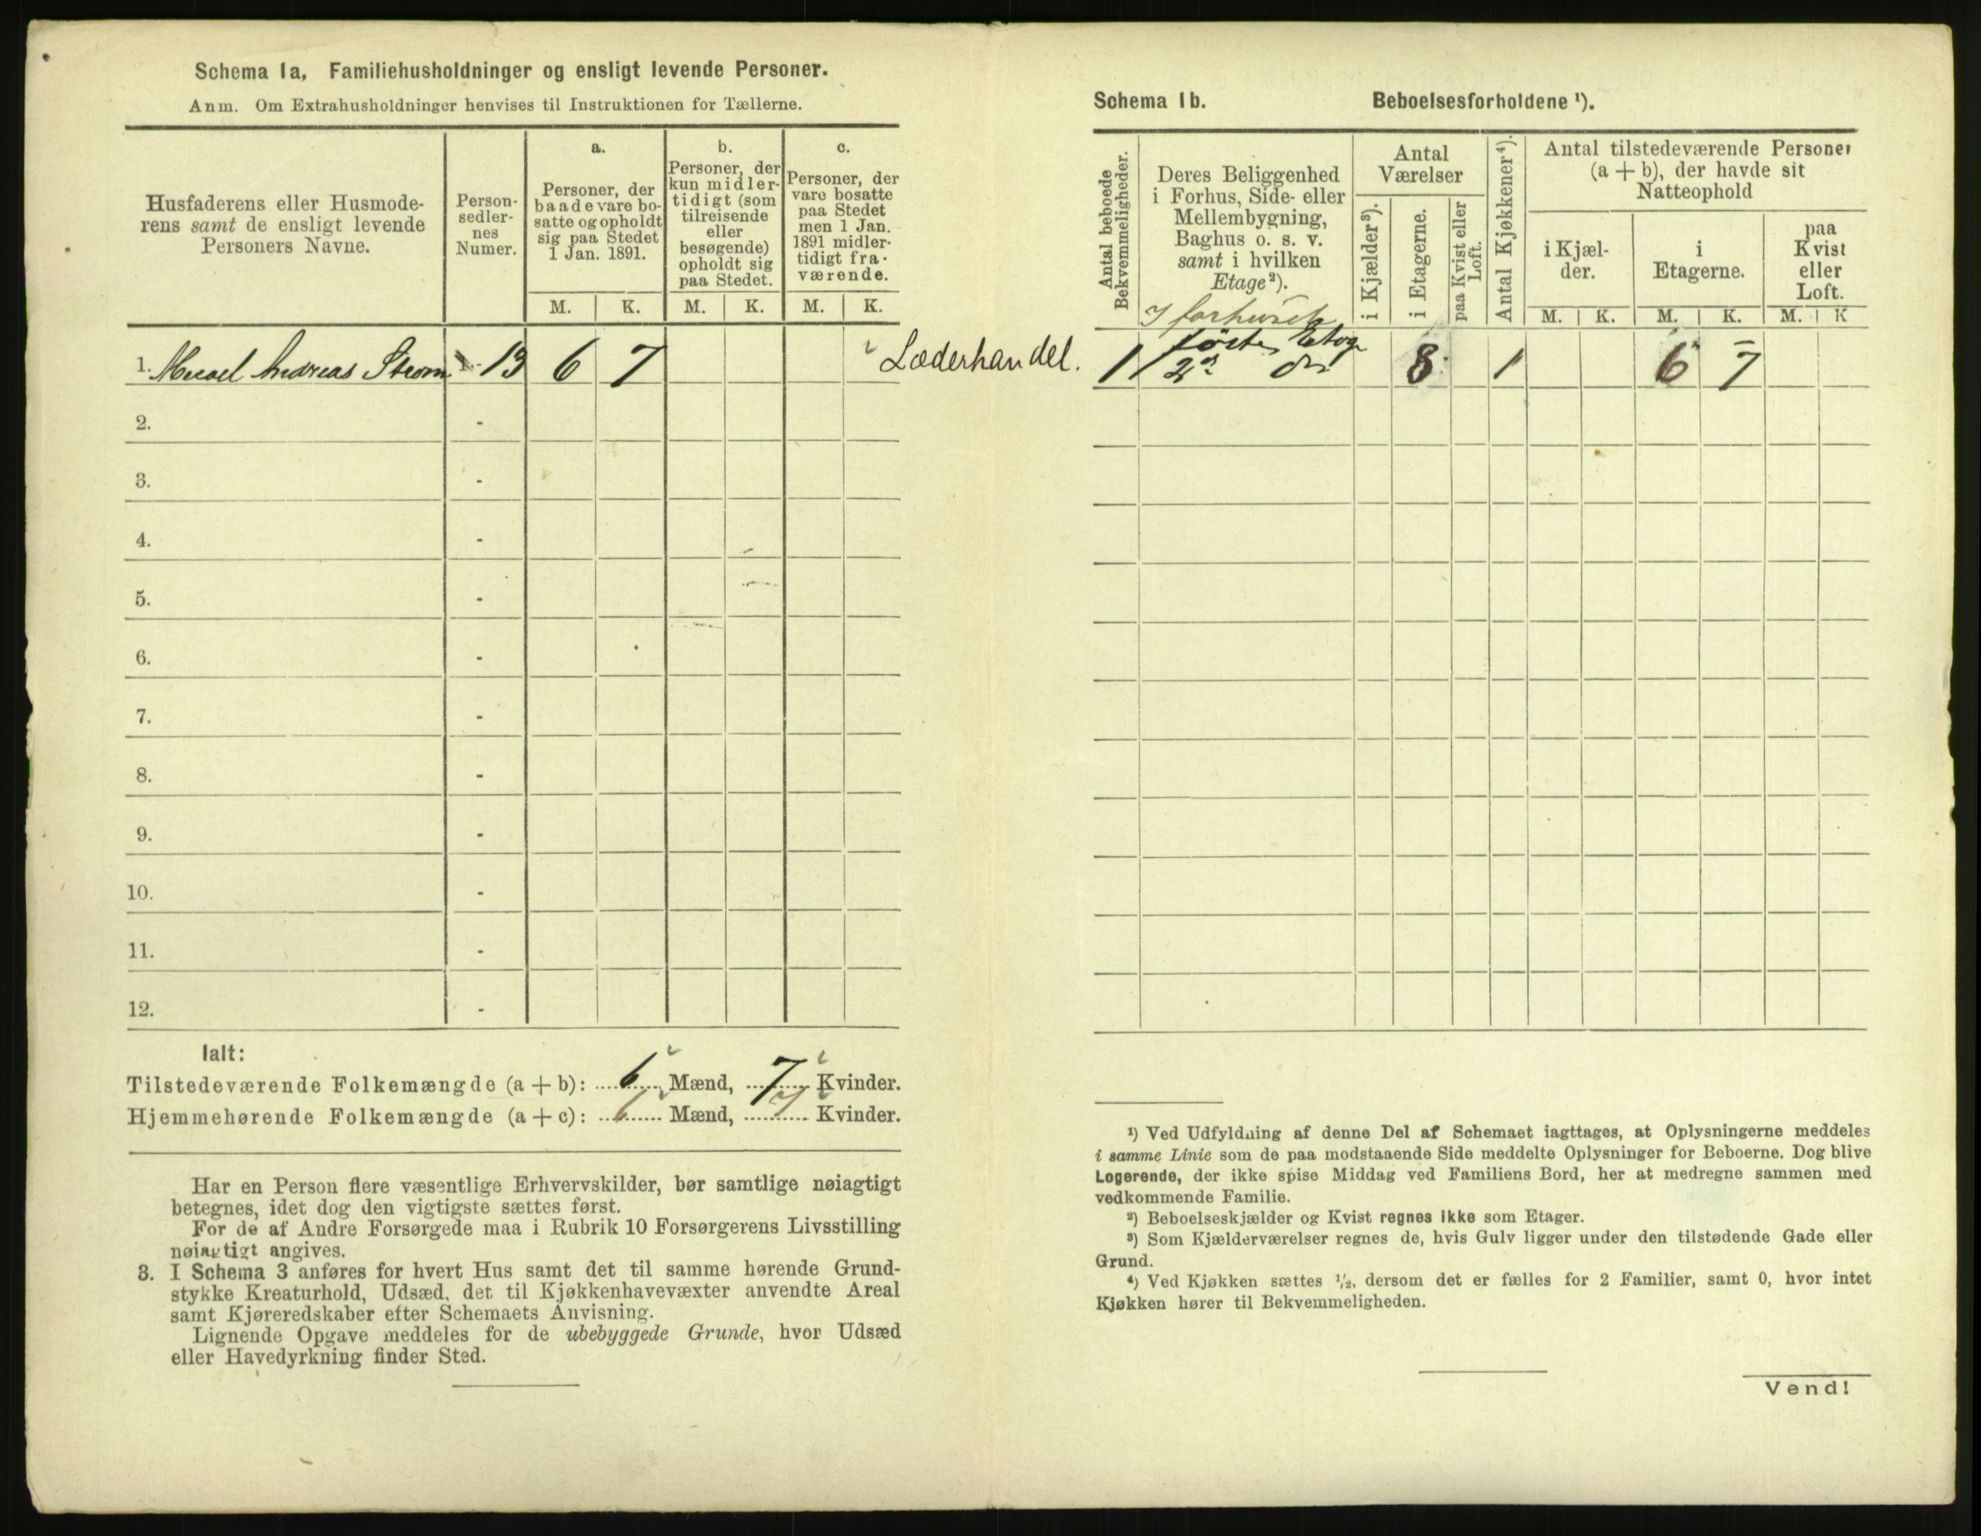 Schema 1a, Familiehusholdninger og ensligt levende Personer.
Anm. Om Extrahusholdninger henvises til Instruktionen for Tællerne.
Husfaderens eller Husmode-
rens samt de ensligt levende
Personers Navne.
Person-
sedler-
nes
Numer.
a.
Personer, der
baade vare bo-
satte og opholdt
sig paa Stedet
1 Jan. 1891.
b.
Personer, der
kun midler-
tidigt (som
tilreisende
eller
besøgende)
opholdt sig
paa Stedet.
c.
Personer, der
vare bosatte
paa Stedet
men 1 Jan.
1891 midler-
tidigt fra-
værende.
M. K. M. K. M. K.
1. Andreas Strøm 1 - 13 6 7 Læderhandel.
2. -
3. -
4. -
5. -
6. -
7. -
8. -
9. -
10. -
11. -
12. -
Ialt:
Tilstedeværende Folkemængde (a + b): 6 Mænd, 7 Kvinder.
Hjemmehørende Folkemængde (a + c): 6 Mænd, 7 Kvinder.
Har en Person flere væsentlige Erhvervskilder, bør samtlige nøiagtigt
betegnes, idet dog den vigtigste sættes først.
For de af Andre Forsørgede maa i Rubrik 10 Forsørgerens Livsstilling
nøiagtigt angives.
3. I Schema 3 anføres for hvert Hus samt det til samme hørende Grund-
stykke Kreaturhold, Udsæd, det til Kjøkkenhavevæxter anvendte Areal
samt Kjøreredskaber efter Schemaets Anvisning.
Lignende Opgave meddeles for de ubebyggede Grunde, hvor Udsæd
eller Havedyrkning finder Sted.
Schema 1b. Beboelsesforholdene ¹).
Antal beboede
Bekvemmeligheder.
Deres Beliggenhed
i Forhus, Side- eller
Mellembygning,
Baghus o. s. v.
samt i hvilken
Etage²).
Antal
Værelser
i Kjælder³).
i Etagerne.
paa Kvist eller
Loft.
Antal Kjøkkener⁴).
Antal tilstedeværende Personer
(a + b), der havde sit
Natteophold
i Kjæl-
der.
i
Etagerne.
paa
Kvist
eller
Loft.
M. K. M. K. M. K
I forhuset
første Etage
1 2 do 8 1 6 7
¹) Ved Udfyldning af denne Del af Schemaet iagttages, at Oplysningerne meddeles
i samme Linie som de paa modstaaende Side meddelte Oplysninger for Beboerne. Dog blive
Logerende, der ikke spise Middag ved Familiens Bord, her at medregne sammen med
vedkommende Familie.
²) Beboelseskjælder og Kvist regnes ikke som Etager.
³) Som Kjælderværelser regnes de, hvis Gulv ligger under den tilstødende Gade eller
Grund.
⁴) Ved Kjøkken sættes ½, dersom det er fælles for 2 Familier, samt 0, hvor intet
Kjøkken hører til Bekvemmeligheden.
Vend!